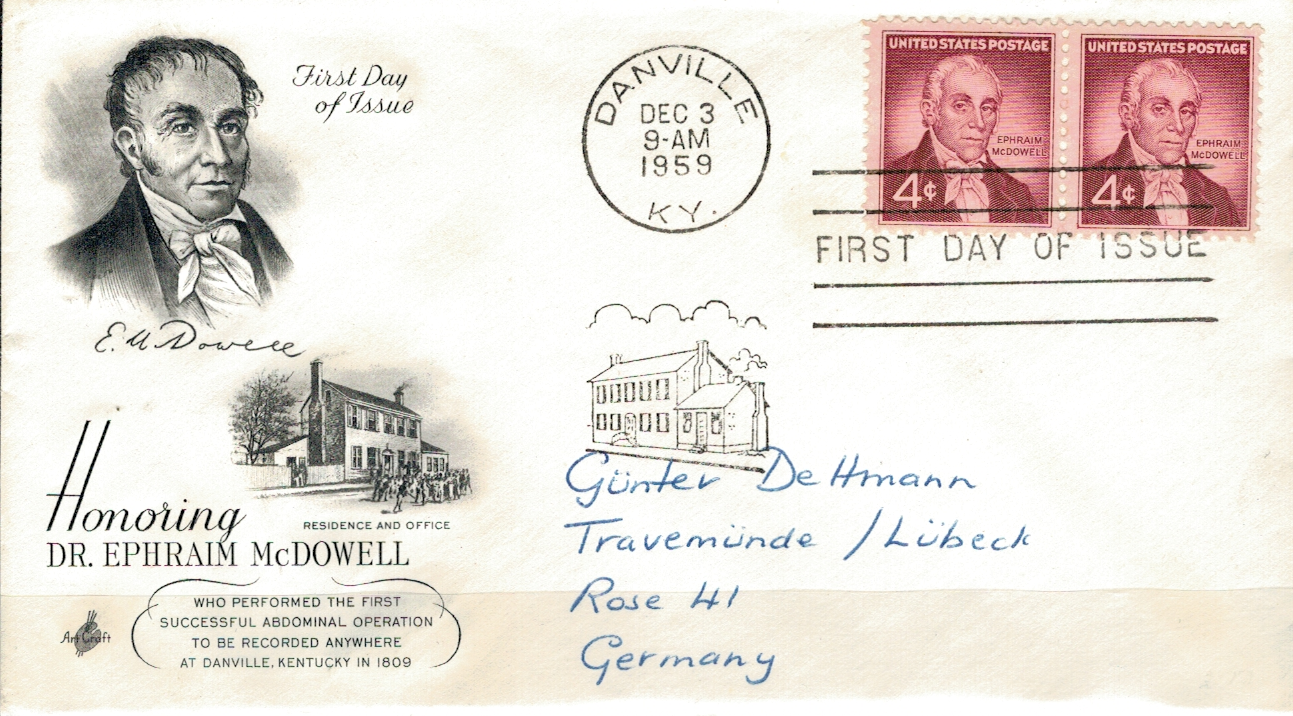 First Day
of Issue
E. McDowell
Honoring
RESIDENCE AND OFFICE
DR. EPHRAIM McDOWELL
WHO PERFORMED THE FIRST
SUCCESSFUL ABDOMINAL OPERATION
TO BE RECORDED ANYWHERE
AT DANVILLE, KENTUCKY IN 1809
ArtCraft
DANVILLE
DEC 3
9-AM
1959
KY.
UNITED STATES POSTAGE
EPHRAIM
McDOWELL
4¢
UNITED STATES POSTAGE
EPHRAIM
McDOWELL
4¢
FIRST DAY OF ISSUE
Günter Dettmann
Travemünde / Lübeck
Rose 41
Germany